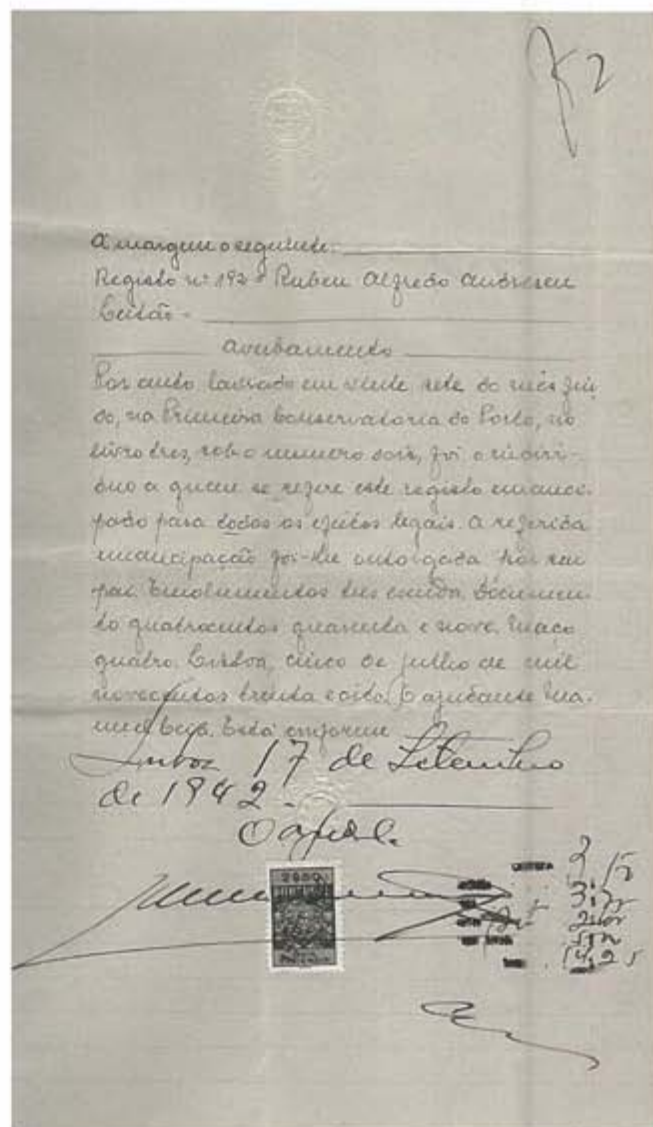 Á margem o seguinte:
Registo nº 192 - Ruben Alfredo Andresen
Leitão -
Averbamento
Por auto lavrado em vinte sete do mês fin
do, na Primeira Conservatoria do Porto, no
livro tres, sob o numero dois, foi o indivi-
duo a quem se refere este registo emanci-
pado para todos os efeitos legais. A referida
emancipação foi-lhe outorgada por seu
pai. Emolumentos tres escudos. Documen-
to quatrocentos quarenta e nove. Maço
quatro. Lisboa, cinco de julho de mil
novecentos trinta e oito. O ajudante Ma-
nuel. Está conforme
Lisboa 17 de Setembro
de 1942.
O
2$00